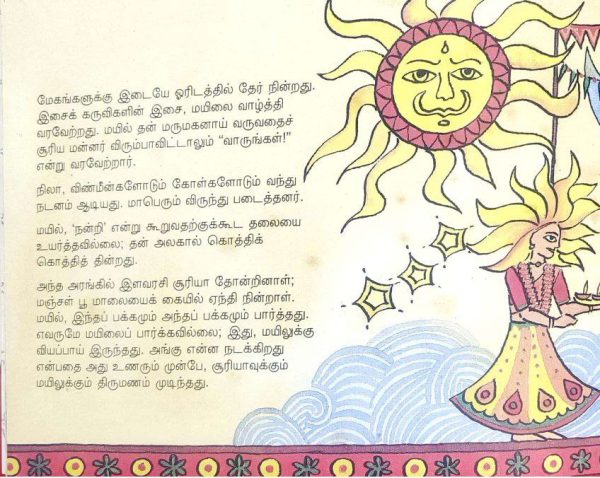 மேகங்களுக்கு இடையே ஓரிடத்தில் தேர் நின்றது.
இசைக் கருவிகளின் இசை, மயிலை வாழ்த்தி
வரவேற்றது. மயில் தன் மருமகனாய் வருவதைச்
சூரிய மன்னர் விரும்பாவிட்டாலும் “வாருங்கள்!”
என்று வரவேற்றார்.
நிலா, விண்மீன்களோடும் கோள்களோடும் வந்து
நடனம் ஆடியது. மாபெரும் விருந்து படைத்தனர்.
மயில், ‘நன்றி’ என்று கூறுவதற்குக்கூட தலையை
உயர்த்தவில்லை; தன் அலகால் கொத்திக்
கொத்தித் தின்றது.
அந்த அரங்கில் இளவரசி சூரியா தோன்றினாள்;
மஞ்சள் பூ மாலையைக் கையில் ஏந்தி நின்றாள்.
மயில், இந்தப் பக்கமும் அந்தப் பக்கமும் பார்த்தது.
எவருமே மயிலைப் பார்க்கவில்லை; இது, மயிலுக்கு
வியப்பாய் இருந்தது. அங்கு என்ன நடக்கிறது
என்பதை அது உணரும் முன்பே, சூரியாவுக்கும்
மயிலுக்கும் திருமணம் முடிந்தது.